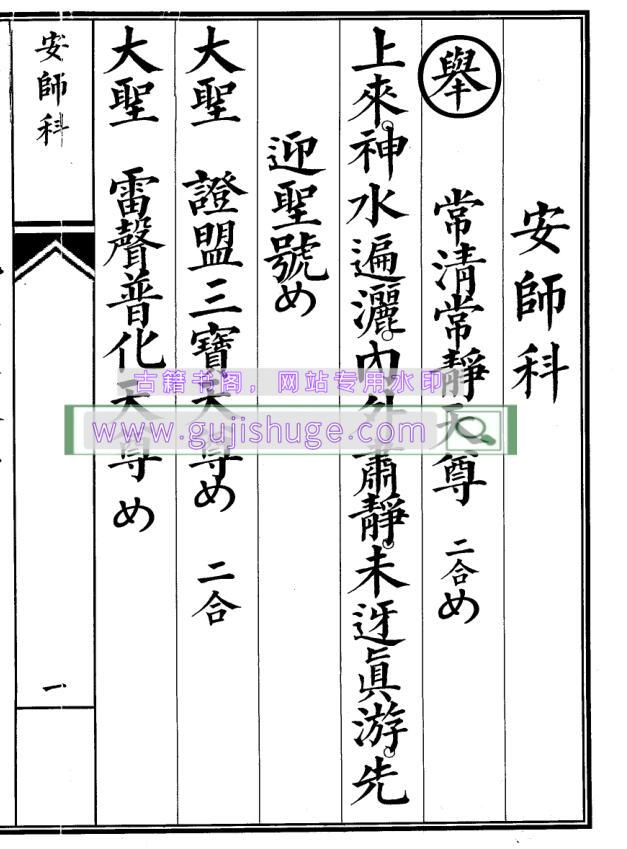 安師科
舉 常清常靜天尊 二合め
上來。神水遍灑。內外肅靜。未迓眞游。先
迎聖號め
大聖 證盟三寶天尊め 二合
大聖 雷聲普化天尊め
安師科
一
古籍书阁，网站专用水印
www.gujishuge.com